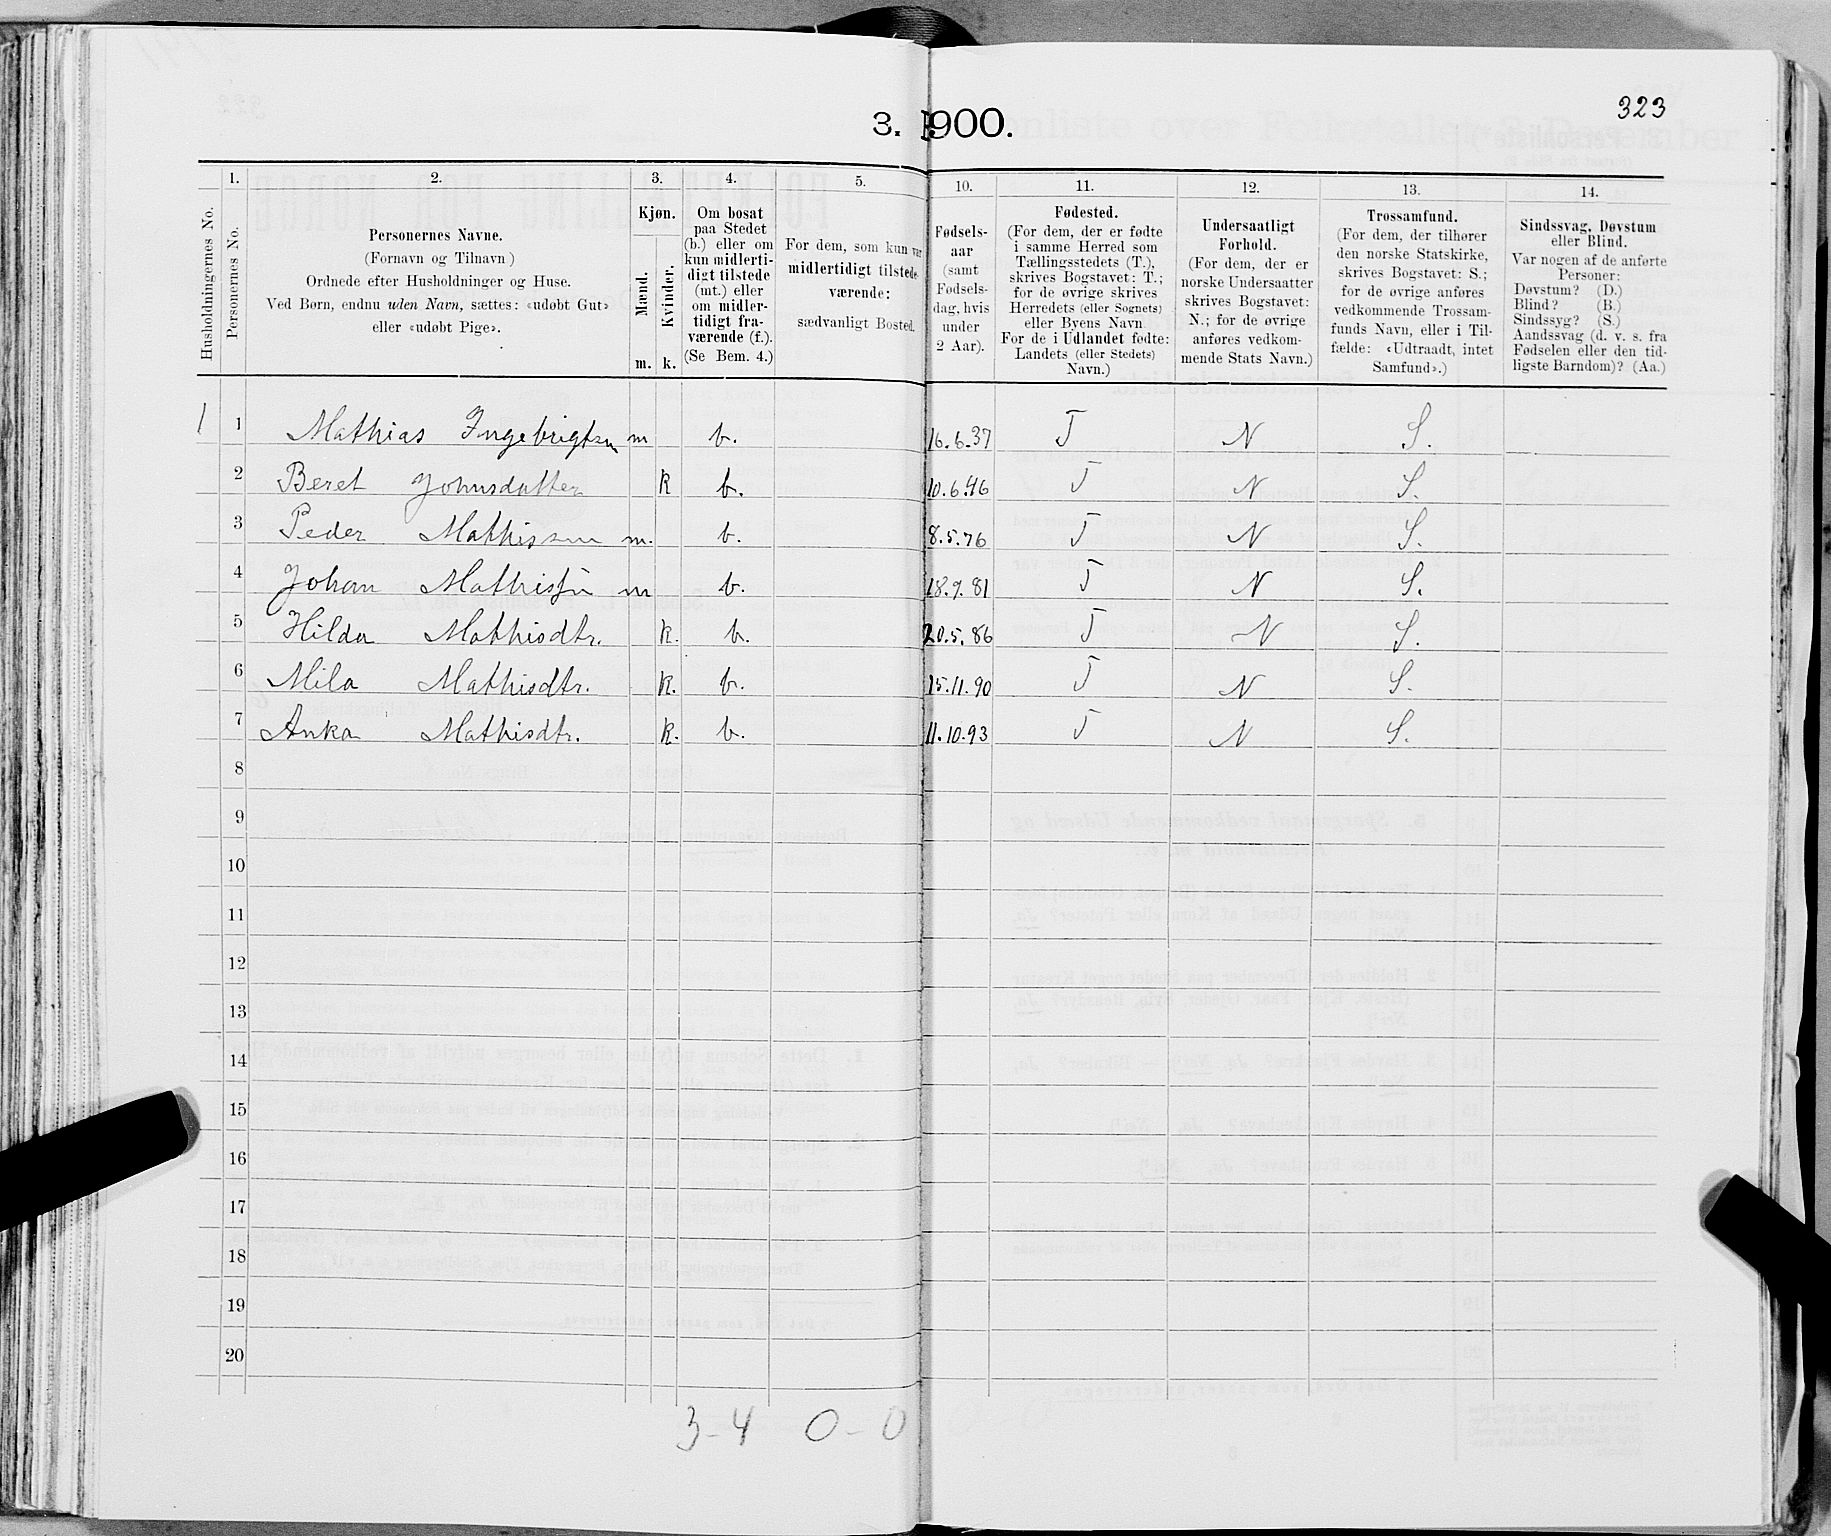 323
3. 1900.
1. 2. 3. 4. 5. 10. 11. 12. 13. 14.
Husholdningernes No.
Personernes No.
Personernes Navne.
(Fornavn og Tilnavn)
Ordnede efter Husholdninger og Huse.
Ved Børn, endnu uden Navn, sættes: «udøbt Gut»
eller «udøbt Pige».
Kjøn.
Mænd.
Kvinder.
m. k.
Om bosat
paa Stedet
(b.) eller om
kun midlerti-
digt tilstede
(mt.) eller
om midler-
tidigt fra-
værende (f.).
(Se Bem. 4.)
For dem, som kun var
midlertidigt tilstede-
værende:
sædvanligt Bosted.
Fødsels-
aar
(samt
Fødsels-
dag, hvis
under
2 Aar).
Fødested.
(For dem, der er fødte
i samme Herred som
Tællingsstedets (T.),
skrives Bogstavet: T.;
for de øvrige skrives
Herredets (eller Sognets)
eller Byens Navn
For de i Udlandet fødte:
Landets (eller Stedets)
Navn.)
Undersaatligt
Forhold.
(For dem, der er
norske Undersaatter
skrives Bogstavet:
N.; for de øvrige
anføres vedkom-
mende Stats Navn.)
Trossamfund.
(For dem, der tilhører
den norske Statskirke,
skrives Bogstavet: S.;
for de øvrige anføres
vedkommende Trossam-
funds Navn, eller i Til-
fælde: «Udtraadt, intet
Samfund».)
Sindssvag, Døvstum
eller Blind.
Var nogen af de anførte
Personer:
Døvstum? (D.)
Blind? (B.)
Sindssyg? (S.)
Aandssvag (d. v. s. fra
Fødselen eller den tid-
ligste Barndom)? (Aa.)
1 1 Mathias Ingebrigtsen m b. 16.6.37 T N S.
2 Beret Johnsdatter k b. 10.6.46 T N S.
3 Peder Mathissen m. b. 8.5.76 T N S.
4 Johan Mathisen m b. 18.9.81 T N S.
5 Hilda Mathisdtr. k. b. 20.5.86 T N S.
6 Mila Mathisdtr. k. b. 15.11.90 T N S.
7 Anka Mathisdtr. k. b. 11.10.93 T N S.
8
9
10
11
12
13
14
15
16
17
18
19
20
3-4 0-0